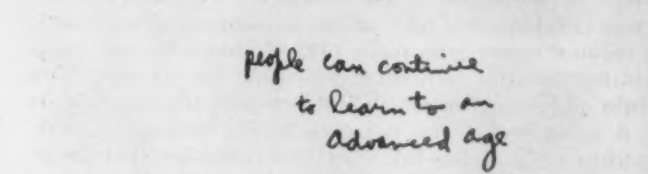 people can continue
to learn to an
advanced age